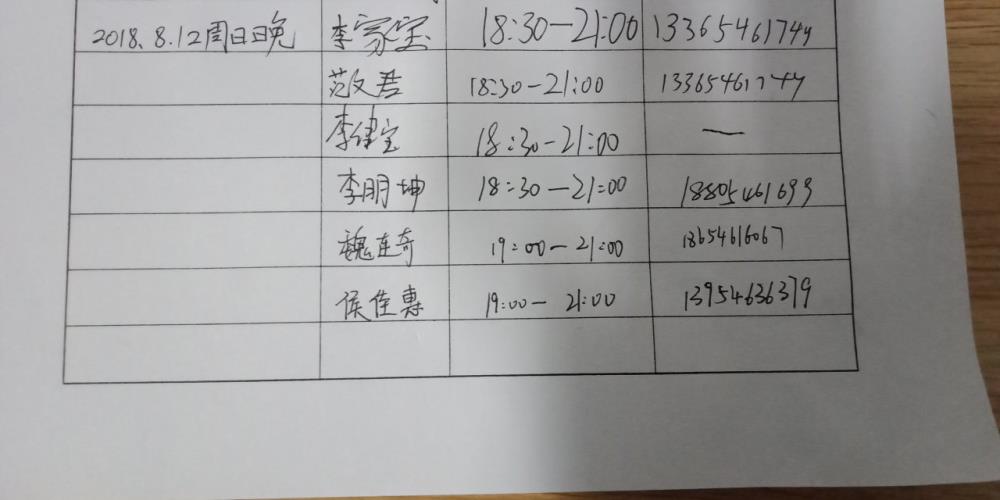 2018.8.12周日晚 李家宝 18:30—21:00 13365461744
范文君 18:30—21:00 13365461744
李健宝 18:30—21:00 —
李朋坤 18:30—21:00 18805461699
魏连奇 19:00—21:00
侯佳惠 19:00—21:00 13954636379